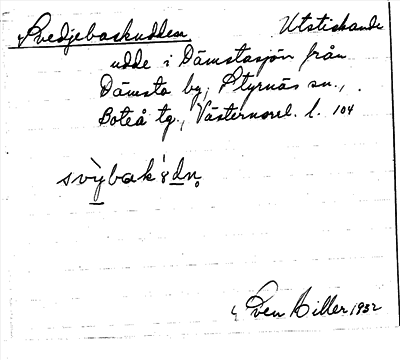 Svedjebackudden Utstickande
udde i Dämstasjön från
Dämsta by, Styrnäs sn.,
Boteå tg., Västernorrl. l. 104
svỳbak'ʊdn̥
Sven Hiller 1932